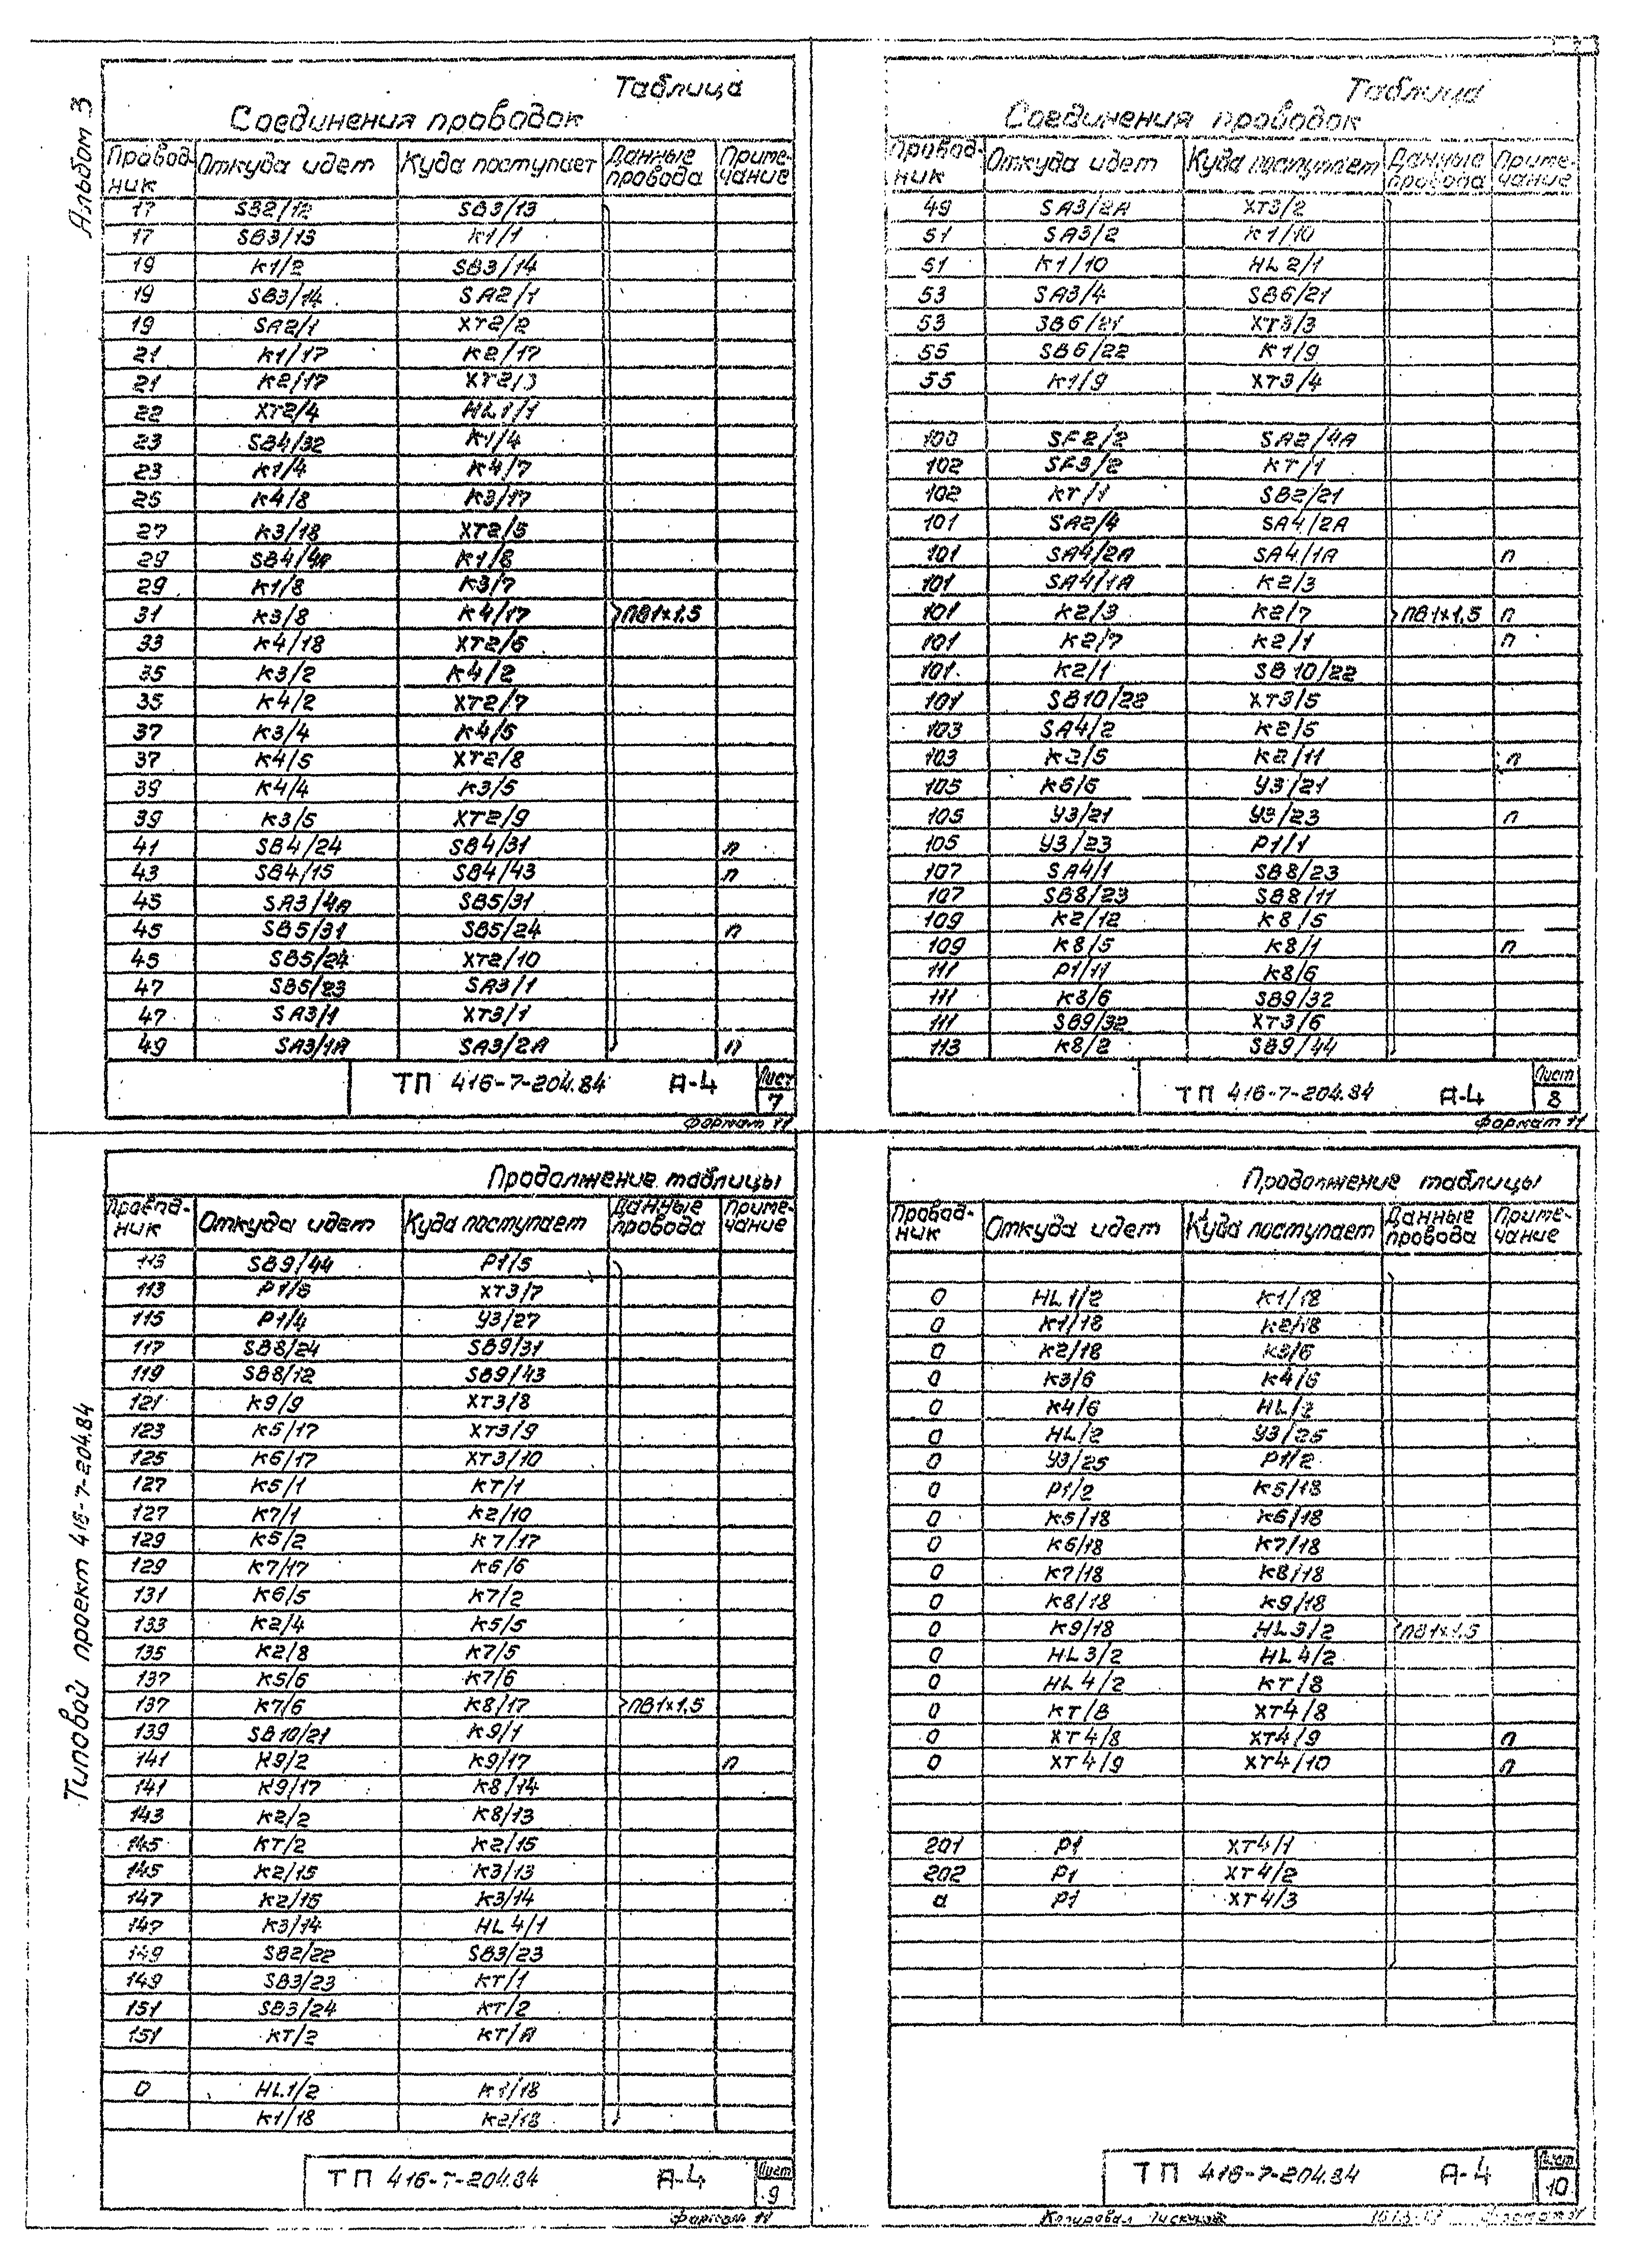 Альбом 3
Таблица
Соединения проводок
Провод-ник Откуда идет Куда поступает Данные провода Приме-чание
17 SB2/12 SB3/13
17 SB3/13 K1/1
19 K1/2 SB3/14
19 SB3/14 SA2/1
19 SA2/1 XT2/2
21 K1/17 K2/17
21 K2/17 XT2/3
22 XT2/4 HL1/1
23 SB4/32 K1/4
23 K1/4 K4/7
25 K4/8 K3/17
27 K3/18 XT2/5
29 SB4/4A K1/8
29 K1/8 K3/7
31 K3/8 K4/17 ПВ1×1,5
33 K4/18 XT2/6
35 K3/2 K4/2
35 K4/2 XT2/7
37 K3/4 K4/5
37 K4/5 XT2/8
39 K4/4 K3/5
39 K3/5 XT2/9
41 SB4/24 SB4/31 п
43 SB4/15 SB4/43 п
45 SA3/4A SB5/31
45 SB5/31 SB5/24 п
45 SB5/24 XT2/10
47 SB5/23 SA3/1
47 SA3/1 XT3/1
49 SA3/1A SA3/2A п
ТП 416-7-204.84 А-4 Лист 7
Формат 11
Таблица
Соединения проводок
Провод-ник Откуда идет Куда поступает Данные провода Приме-чание
49 SA3/2A XT3/2
51 SA3/2 K1/10
51 K1/10 HL2/1
53 SA3/4 SB6/21
53 SB6/21 XT3/3
55 SB6/22 K1/9
55 K1/9 XT3/4
100 SF2/2 SA2/4A
102 SF3/2 KT/1
102 KT/1 SB2/21
101 SA2/4 SA4/2A
101 SA4/2A SA4/1A п
101 SA4/1A K2/3
101 K2/3 K2/7 ПВ1×1,5 п
101 K2/7 K2/1 п
101 K2/1 SB10/22
101 SB10/22 XT3/5
103 SA4/2 K2/5
103 K2/5 K2/11 п
105 K6/6 У3/21
105 У3/21 У3/23 п
105 У3/23 P1/1
107 SA4/1 SB8/23
107 SB8/23 SB8/11
109 K2/12 K8/5
109 K8/5 K8/1 п
111 P1/11 K8/6
111 K8/6 SB9/32
111 SB9/32 XT3/6
113 K8/2 SB9/44
ТП 416-7-204.84 А-4 Лист 8
Формат 11
Типовой проект 416-7-204.84
Продолжение таблицы
Провод-ник Откуда идет Куда поступает Данные провода Приме-чание
113 SB9/44 P1/5
113 P1/5 XT3/7
115 P1/4 У3/27
117 SB8/24 SB9/31
119 SB8/12 SB9/43
121 K9/9 XT3/8
123 K5/17 XT3/9
125 K6/17 XT3/10
127 K5/1 KT/1
127 K7/1 K2/10
129 K5/2 K7/17
129 K7/17 K6/6
131 K6/5 K7/2
133 K2/4 K5/5
135 K2/8 K7/5
137 K5/6 K7/6
137 K7/6 K8/17 ПВ1×1,5
139 SB10/21 K9/1
141 K9/2 K9/17 п
141 K9/17 K8/14
143 K2/2 K8/13
145 KT/2 K2/15
145 K2/15 K3/13
147 K2/15 K3/14
147 K3/14 HL4/1
149 SB2/22 SB3/23
149 SB3/23 KT/1
151 SB3/24 KT/2
151 KT/2 KT/A
0 HL1/2 K1/18
K1/18 K2/18
ТП 416-7-204.84 А-4 Лист 9
Формат 11
Продолжение таблицы
Провод-ник Откуда идет Куда поступает Данные провода Приме-чание
0 HL1/2 K1/18
0 K1/18 K2/18
0 K2/18 K3/6
0 K3/6 K4/6
0 K4/6 HL/2
0 HL/2 У3/25
0 У3/25 P1/2
0 P1/2 K5/18
0 K5/18 K6/18
0 K6/18 K7/18
0 K7/18 K8/18
0 K8/18 K9/18
0 K9/18 HL3/2 ПВ1×1,5
0 HL3/2 HL4/2
0 HL4/2 KT/8
0 KT/8 XT4/8
0 XT4/8 XT4/9 п
0 XT4/9 XT4/10 п
201 P1 XT4/1
202 P1 XT4/2
a P1 XT4/3
ТП 416-7-204.84 А-4 Лист 10
Копировал